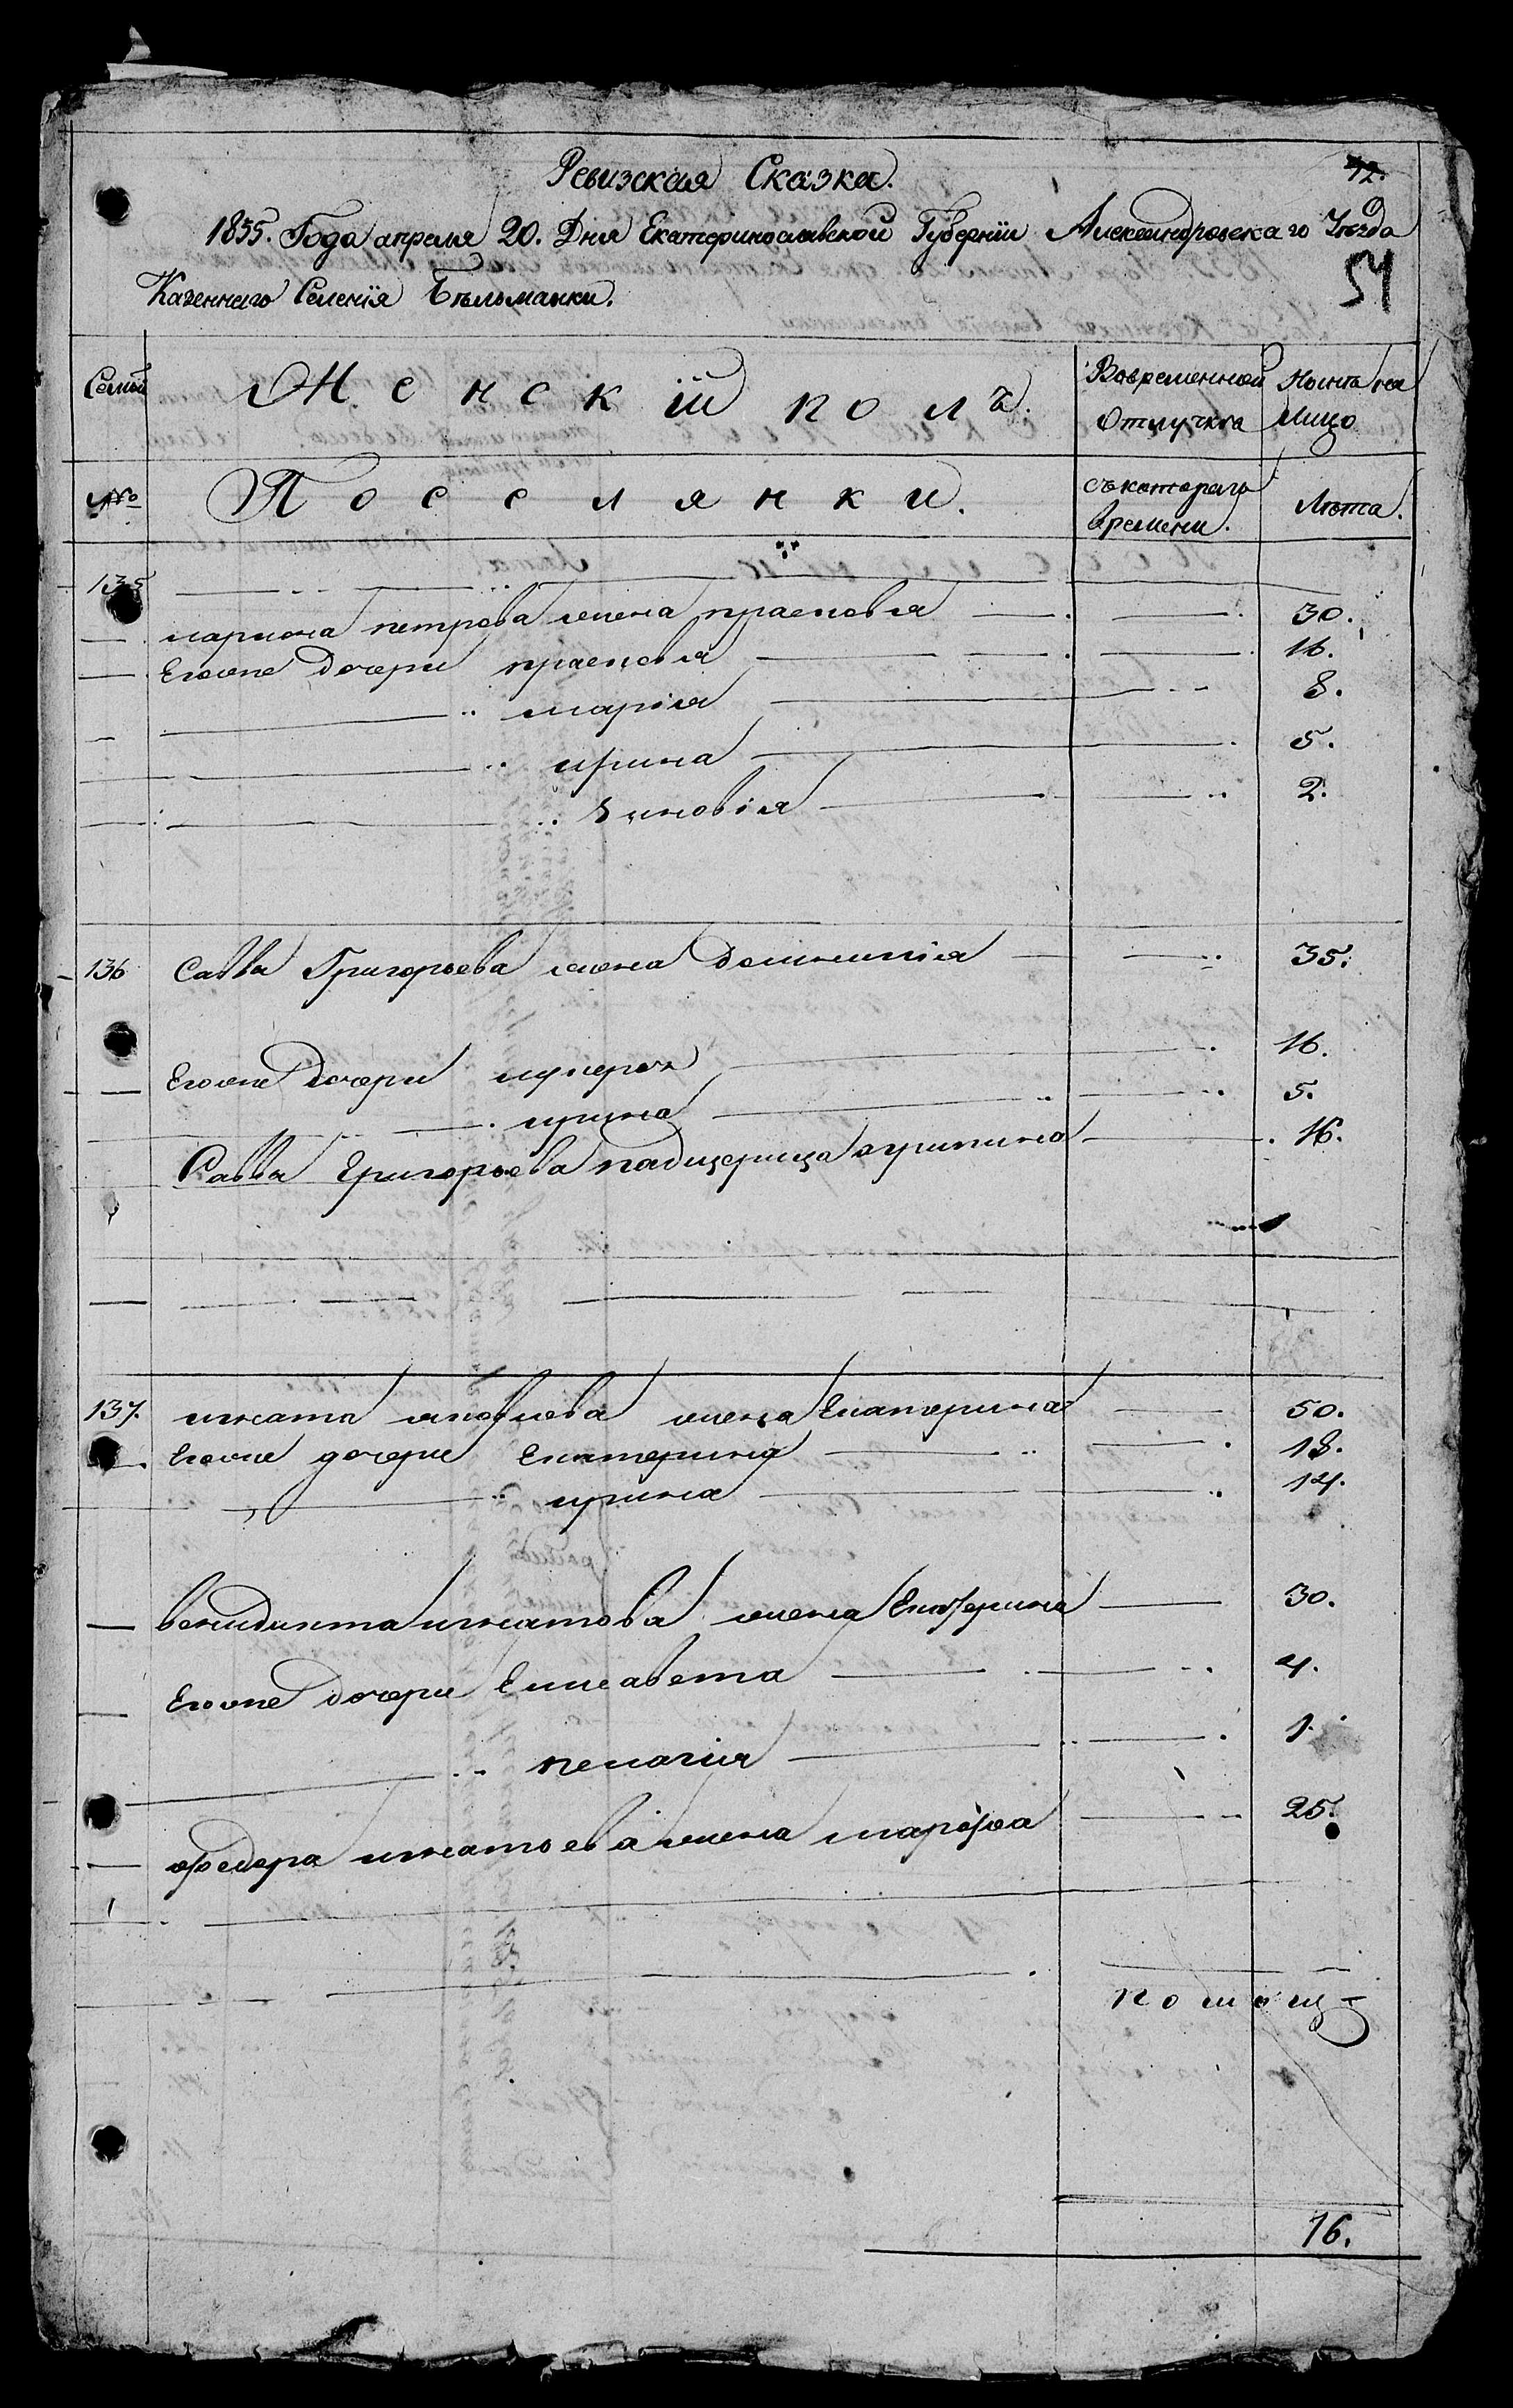 Ревизская Сказка.
12.
1855. Года апреля 20. Дня Екатеринославской Губерніи Александровскаго Уѣзда
Казеннаго Селенія Бѣльманки.
54
Семьи Женскій полъ. Вовременной Отлучкѣ Нынѣ на Лицо
№ Посселянки. съ котораго времени. Лѣта.
135
марк петрова жена прасковья 30.
Егоже дочери прасковья 16.
марія 8.
ирина 5.
Зиновія 2.
136 Савва Григорьева жена 35.
Егоже дочери лукерья 16.
ирина 5.
Савва Григорьева падщерица агрипина 16.
137. игната яковлева жена Екатерина 50.
Егоже дочери Екатерина 18.
ирина 14.
венидикта игнатова жена Екатерина 30.
Егоже дочери Елисавета 4.
пелагия 1.
федора игнатова жена марфа 25.
помощ
16.